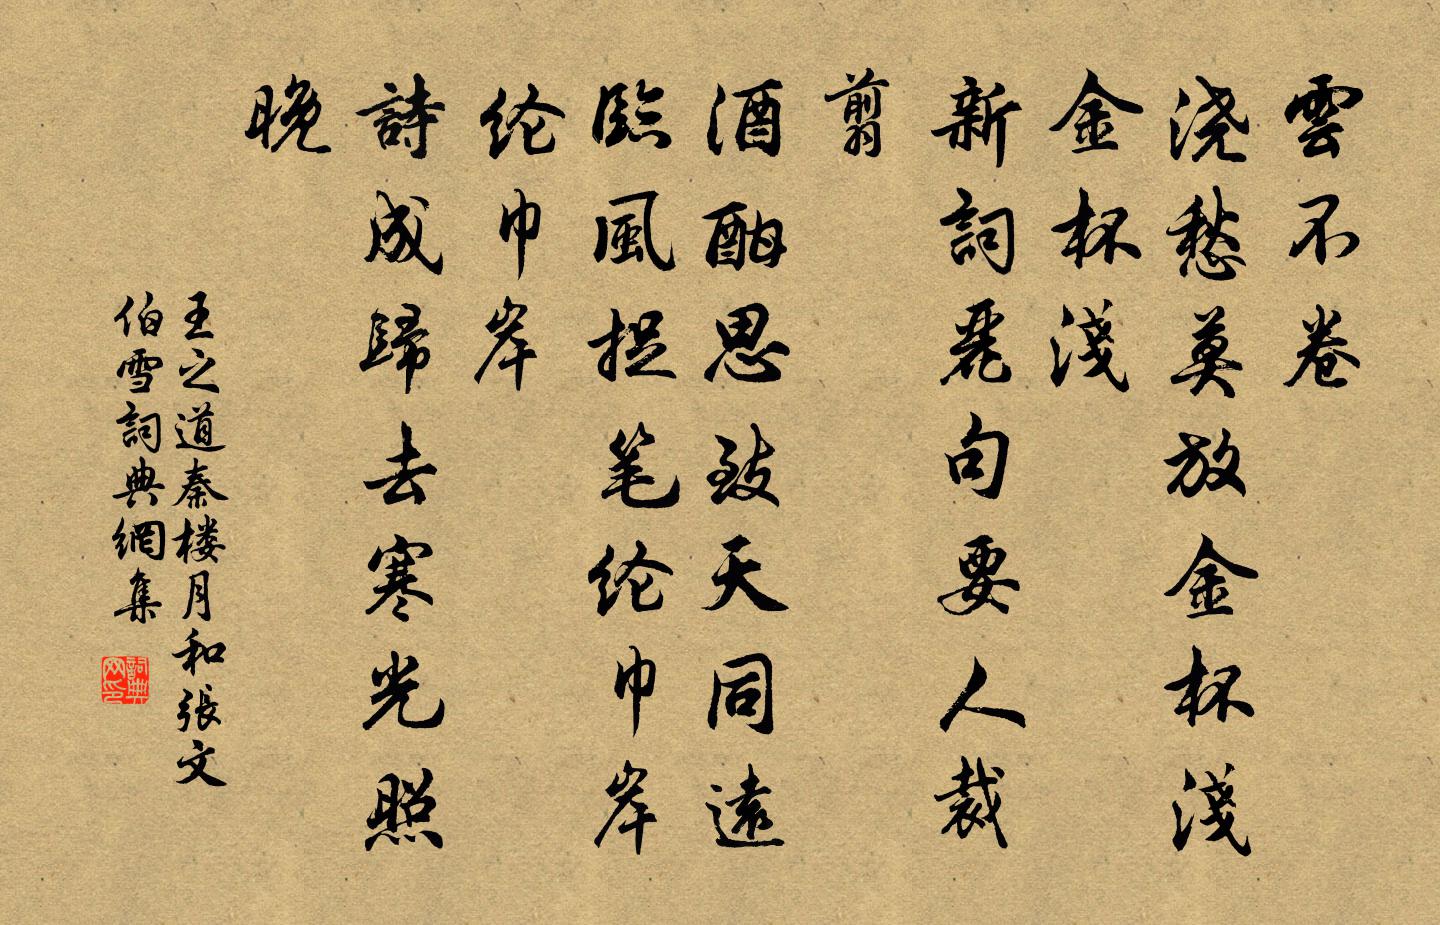 雲不卷
浇愁莫放金杯淺
金杯淺
新詞麗句要人裁
翦
酒酣思致天同遠
臨風捉笔纶巾岸
纶巾岸
詩成歸去寒光照
晚
王之道秦楼月和張文
伯雪詞典網集
詞典网印